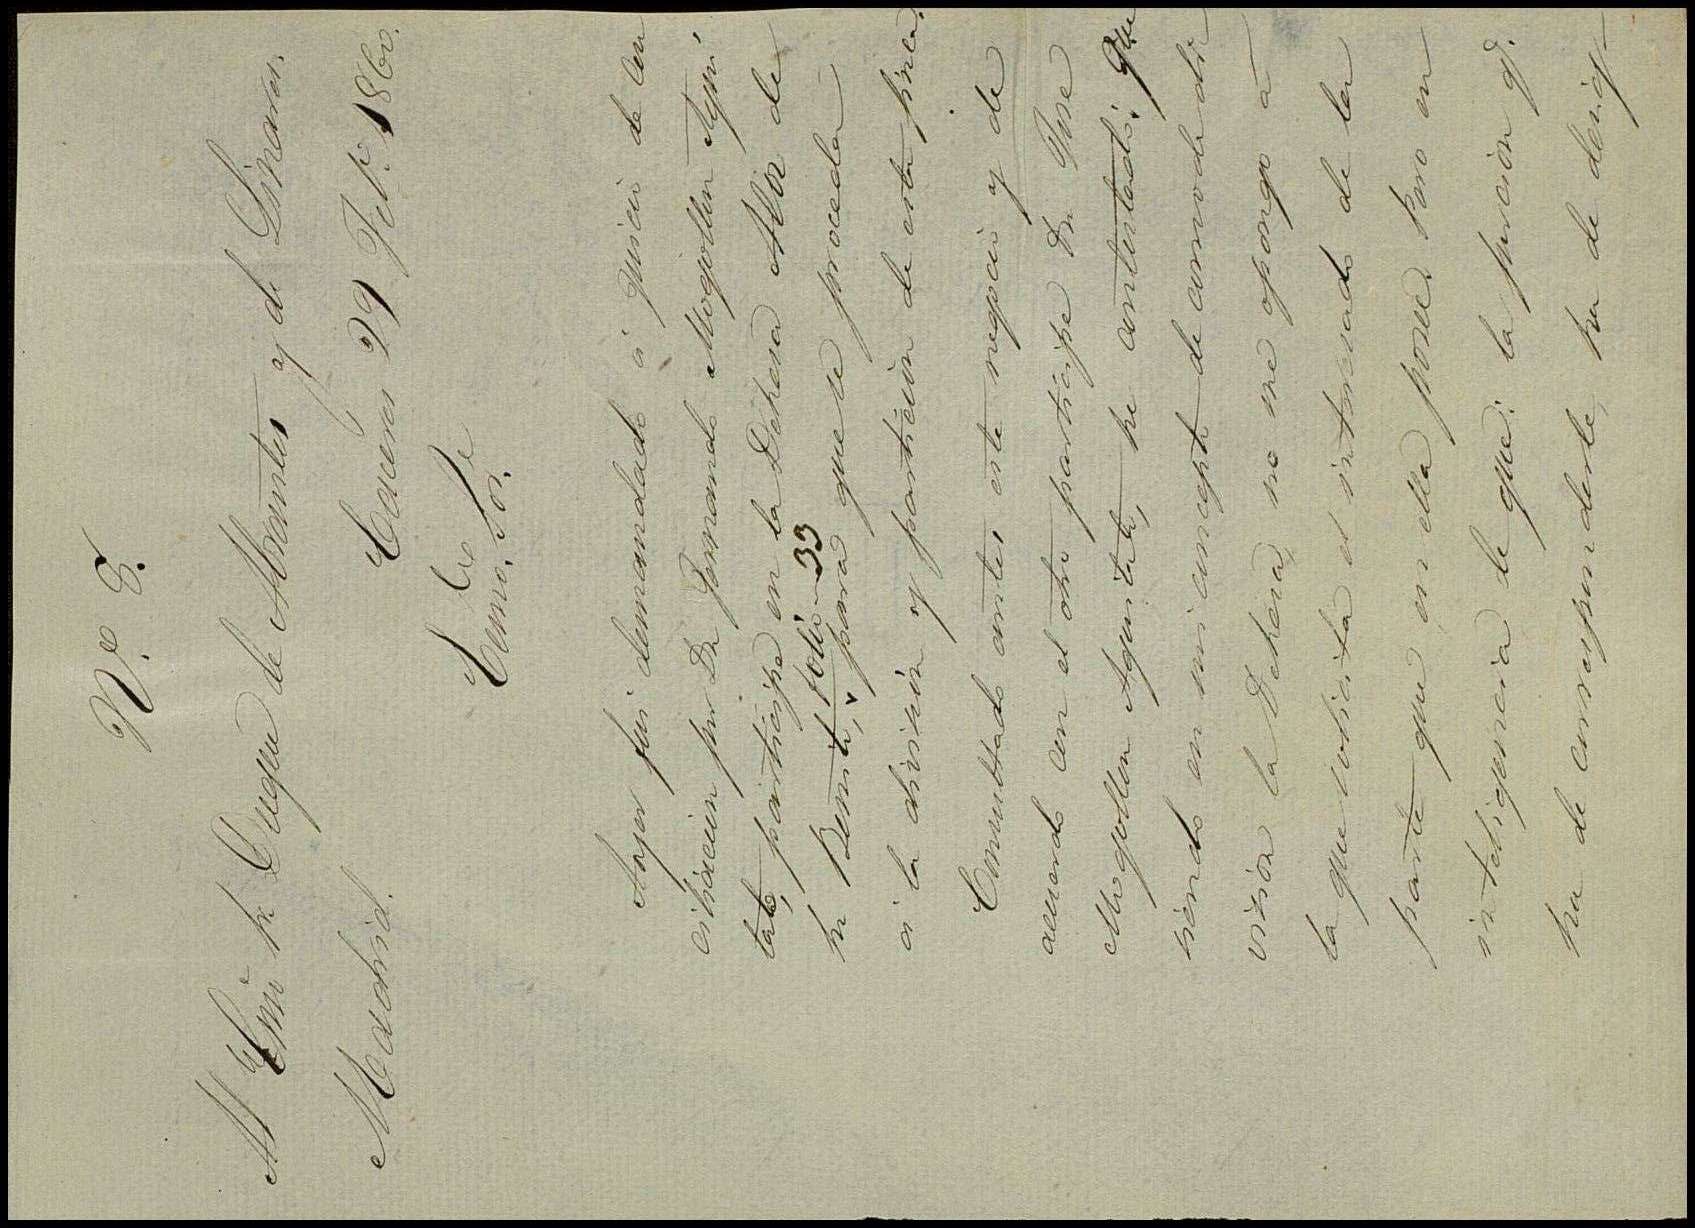 N.º 8.
Al Exmo Sr Duque de Abrantes y de Linares.
Madrid. Caceres 29 Feb.º 1860.
Exmo. Sor.
Ayer fui demandado á juicio de con
ciliacion por Dn Fernando Mogollon Agui
tate, participe en la Dehesa Alor de
Benito, folio 33 para que se proceda
á la division y particion de esta finca.
Consultado antes este negocio y de
acuerdo con el otro participe Dn Jose
Mogollon he contestado; que
siendo en mi concepto de comoda di
vision la Dehesa, no me opongo á
la que solicita el interesado de la
parte que en ella posee, pero en
inteligencia de que: la porcion q.
ha de corresponderle, ha de desig